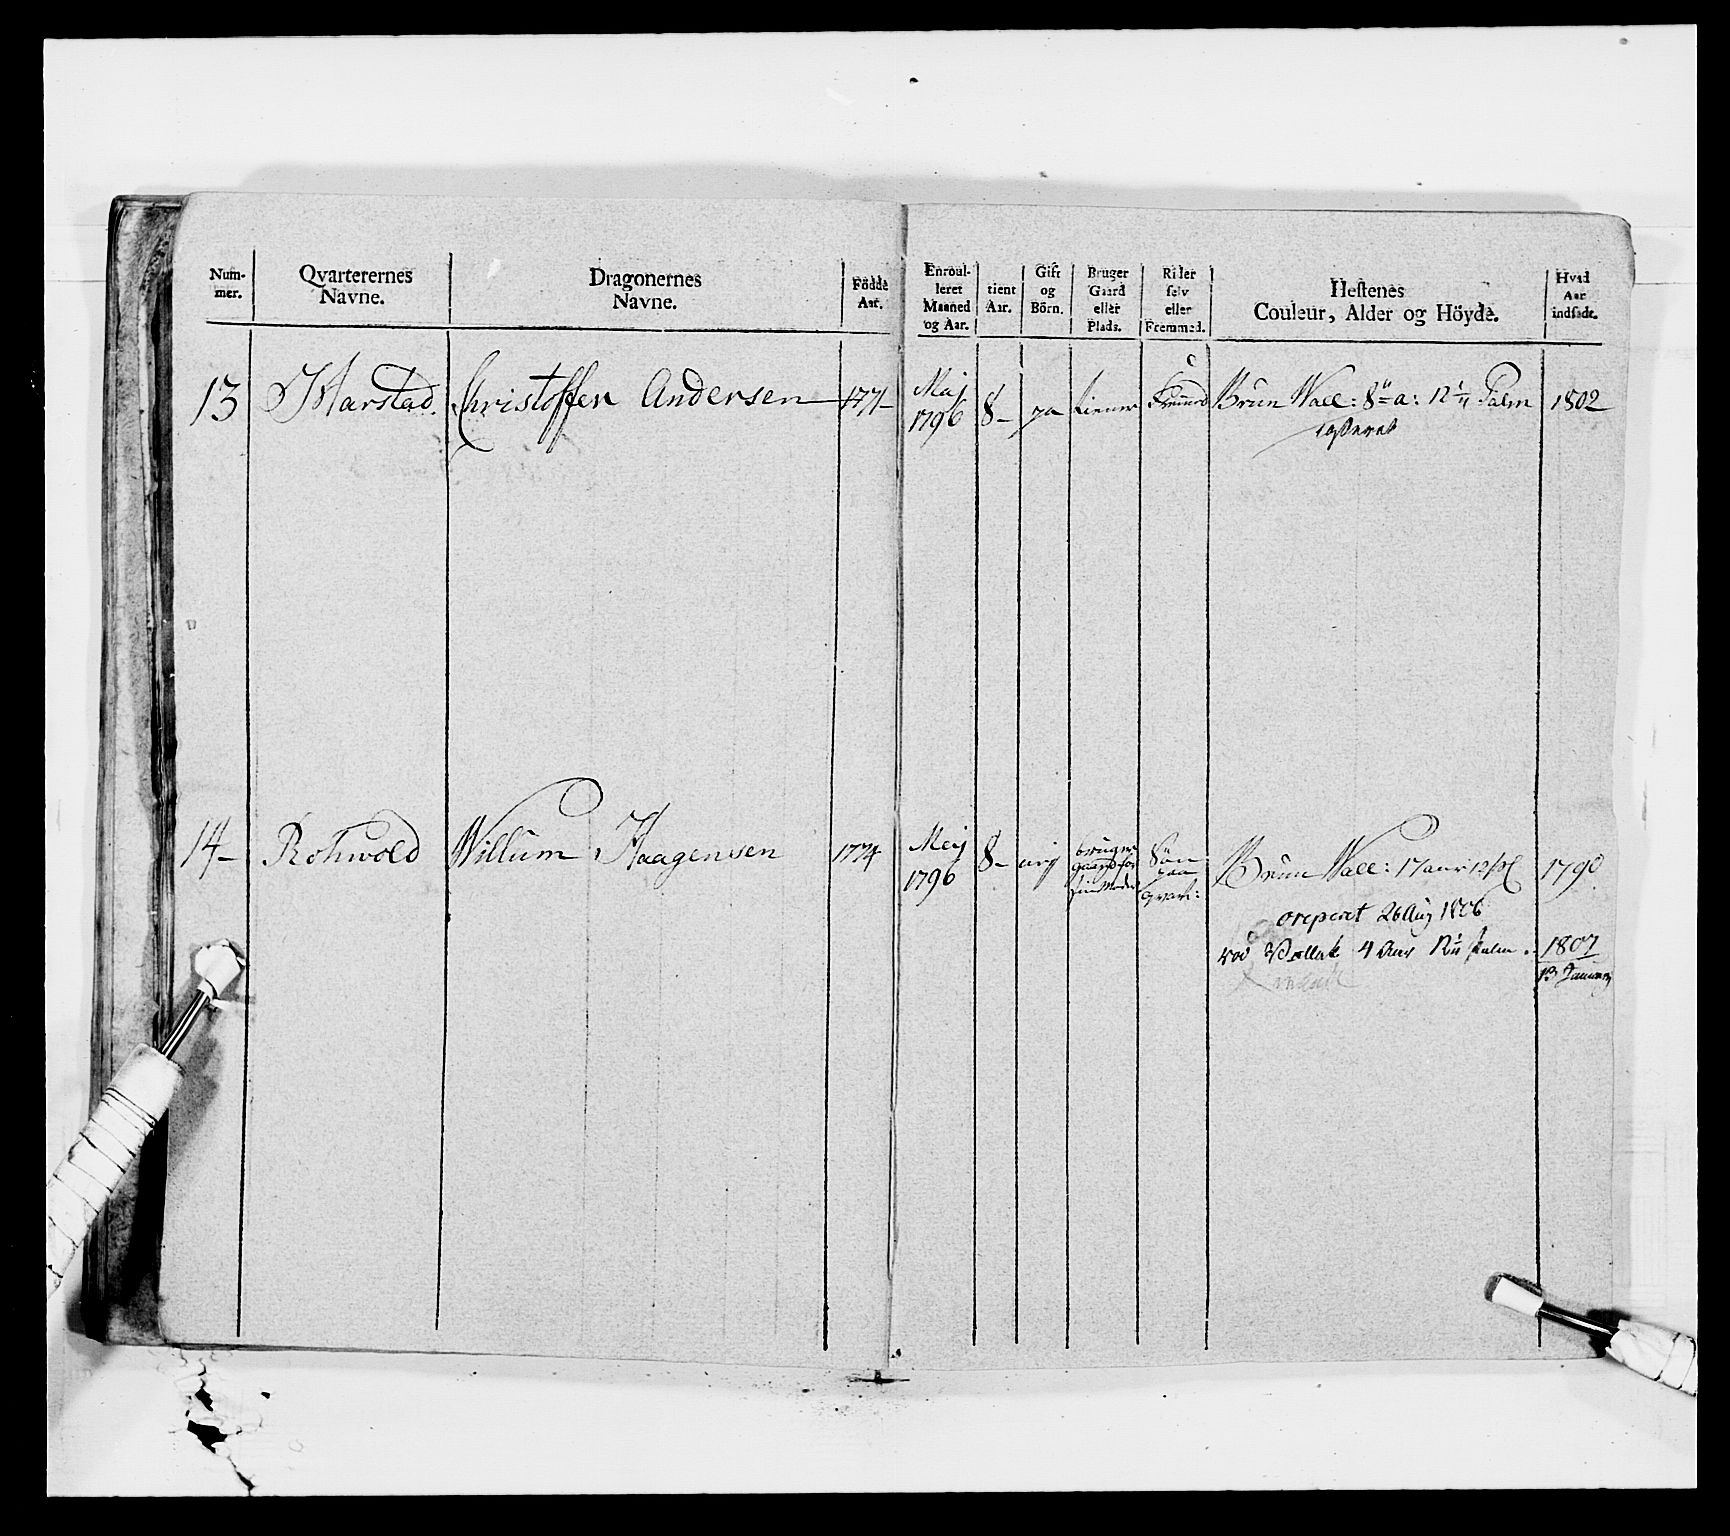 Num-
mer.
Qvarterernes
Navne.
Dragonernes
Navne.
Födde
Aar.
Enroul-
leret
Maaned
og Aar.
tient
Aar.
Gift
og
Börn.
Bruger
Gaard
eller
Plads.
Rider
selv
eller
Fremmed.
Hestenes
Couleur, Alder og Höyde.
Hvad
Aar
indsadt.
13 Marstad. Christoffer Andersen 1771 Maj 1796 8 ja tiener Fremmed Brun Wall: 8 a: 12 Palm 1802
casseret
14 Rohwold Willum Haagensen 1774 Meij 1796 8 bruger gaard for sin Moder Søn paa Qvart: Brun Wall: 17 aar 1790
26 Aug 1806
rød Vallak 4 Aar Palm 1807
13 Januarij